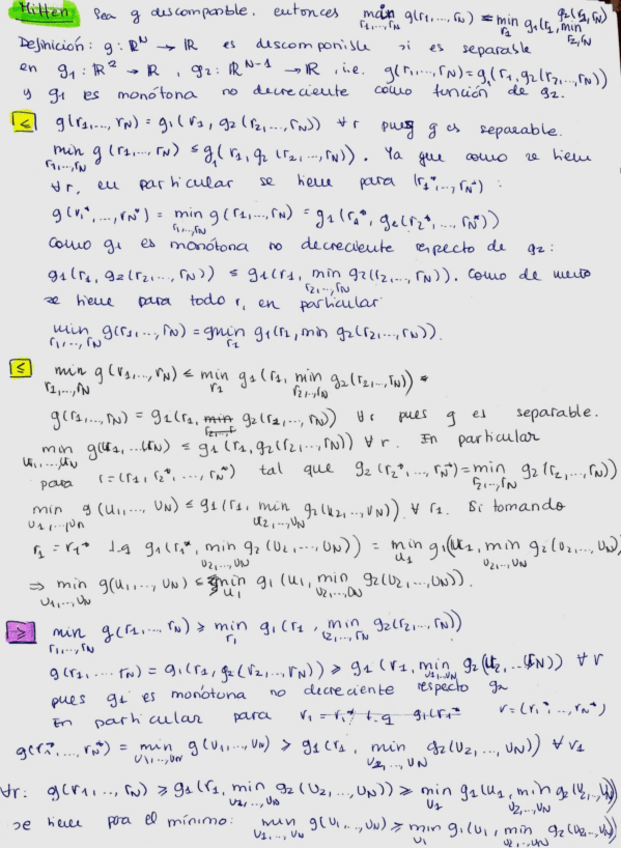 Mitten Sea g descomponible, entonces min g(r₁,..., r_N) = min g₁(r₁, min g₂(r₂,r_N))
r₁,...,r_N r₁ r₂,r_N
Definición: g: ℝᴺ → ℝ es descomponible si es separable
en g₁: ℝ² → ℝ, g₂: ℝᴺ⁻¹ → ℝ, i.e. g(r₁,...,r_N) = g₁(r₁, g₂(r₂,...,r_N))
y g₁ es monótona no decreciente como función de g₂.
≤ g(r₁,..., r_N) = g₁(r₁, g₂(r₂,..., r_N)) ∀r pues g es separable.
min g(r₁,...,r_N) ≤ g₁(r₁, g₂(r₂,...,r_N)). Ya que como se tiene
r₁,...,r_N
∀r, en particular se tiene para (r₁*,..., r_N*):
g(r₁*,..., r_N*) = min g(r₁,...,r_N) = g₁(r₁*, g₂(r₂*,... r_N*))
r₁,...,r_N
Como g₁ es monótona no decreciente respecto de g₂:
g₁(r₁, g₂(r₂,..., r_N)) ≤ g₁(r₁, min g₂(r₂,..., r_N)). Como de nuevo
r₂,...,r_N
se tiene para todo r, en particular
min g(r₁,..., r_N) = gmin g₁(r₁, min g₂(r₂,..., r_N)).
r₁,...,r_N r₂
≤ min g(r₁,..., r_N) ≤ min g₁(r₁, min g₂(r₂,...,r_N))
r₁,...,r_N r₁ r₂,...,r_N
g(r₁,..., r_N) = g₁(r₁, min g₂(r₂,..., r_N)) ∀r pues g es separable.
min g(u₁,..., u_N) ≤ g₁(r₁, g₂(r₂,..., r_N)) ∀r. En particular
u₁,...,u_N
para r=(r₁, r₂*,..., r_N*) tal que g₂(r₂*,..., r_N*) = min g₂(r₂,..., r_N))
r₂,...,r_N
min g(u₁,..., u_N) ≤ g₁(r₁, min g₂(u₂,..., u_N)) ∀ r₁. Si tomando
u₁,...,u_N u₂,...,u_N
r₁ = r₁* t.q g₁(r₁*, min g₂(u₂,..., u_N)) = min g₁(u₁, min g₂(u₂,..., u_N)
u₂,...,u_N u₁ u₂,...,u_N
⇒ min g(u₁,..., u_N) ≤ min g₁(u₁, min g₂(u₂,..., u_N)).
u₁,...,u_N u₁ u₂,...,u_N
≥ min g(r₁,..., r_N) ≥ min g₁(r₁, min g₂(r₂,..., r_N))
r₁,...,r_N r₁ r₂,...,r_N
g(r₁,... r_N) = g₁(r₁, g₂(r₂,..., r_N)) ≥ g₁(r₁, min g₂(u₂,...,u_N)) ∀r
u₂,...,u_N
pues g₁ es monótona no decreciente respecto g₂
En particular para r₁ = r₁* t.q g₁(r₁* r=(r₁*,..., r_N*)
g(r₁*,..., r_N*) = min g(u₁,..., u_N) ≥ g₁(r₁, min g₂(u₂,..., u_N)) ∀ r₁
u₁,...,u_N u₂,...,u_N
∀r: g(r₁,..., r_N) ≥ g₁(r₁, min g₂(u₂,..., u_N)) ≥ min g₁(u₁, min g₂(u₂,...,u_N))
u₂,...,u_N u₁ u₂,...,u_N
se tiene para el mínimo: min g(u₁,..., u_N) ≥ min g₁(u₁, min g₂(u₂,...,u_N))
u₁,...,u_N u₁ u₂,...,u_N